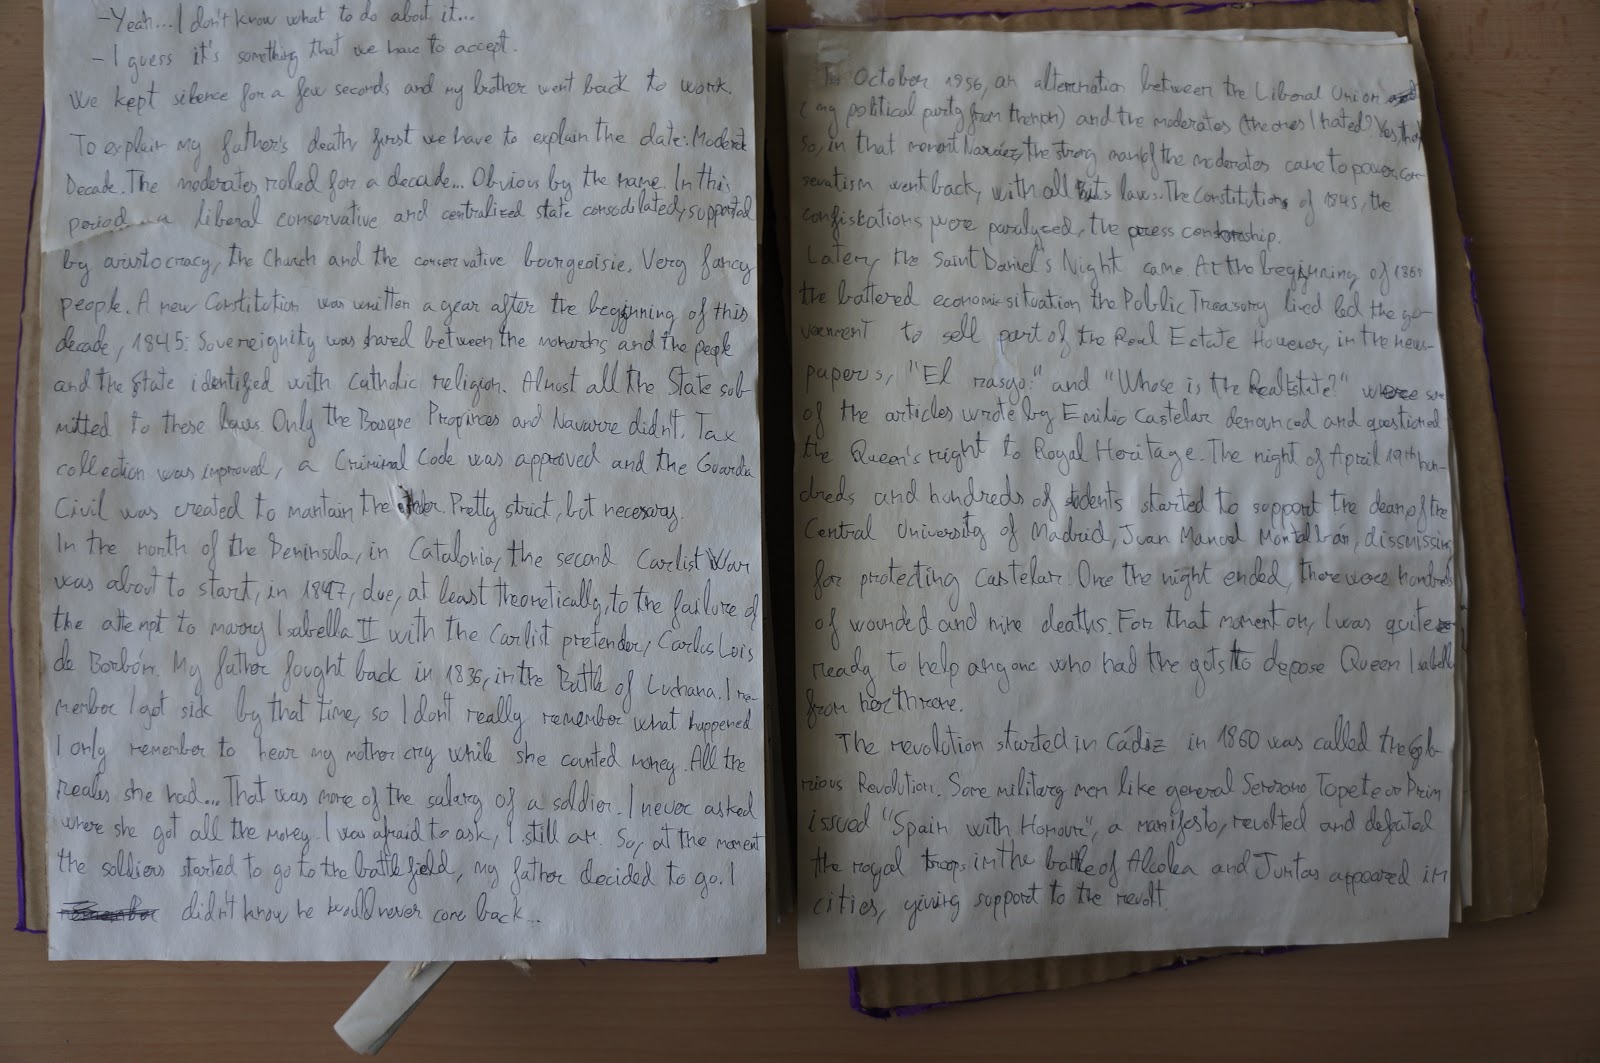 -Yeah...I don't know what to do about it...
-I guess it's something that we have to accept.
We kept silence for a few seconds and my brother went back to work.
To explain my father's death, first we have to explain the date: Moderate
Decade. The moderates ruled for a decade... Obvious by the name. In this
period a liberal conservative and centralized state consodilated, supported
by aristocracy, the Church and the conservative bourgeoisie. Very fancy
people. A new Constitution was written a year after the beginning of this
decade, 1845: Sovereignity was shared between the monarchs and the people
and the State identifed with Catholic religion. Almost all the State sub-
mitted to these laws. Only the Basque Provinces and Navarre didn't. Tax
collection was improved, a Criminal Code was approved and the Guardia
Civil was created to mantain the order. Pretty strict, but necessary.
In the north of the Peninsula, in Catalonia, the second Carlist War
was about to start, in 1847, due, at least theoretically, to the failure of
the attempt to marry Isabella II with the Carlist pretender, Carlos Luis
de Borbón. My father fought back in 1836, in the Battle of Luchana. I re-
member I got sick by that time, so I don't really remember what happened
I only remember to hear my mother cry while she counted money. All the
reales she had... That was more of the salary of a soldier. I never asked
where she got all the money. I was afraid to ask, I still am. So, at the moment
the soldiers started to go to the battlefield, my father decided to go. I
didn't know he would never come back...
In October 1956, an alternation between the Liberal Union
(my political party from then on) and the moderates (the ones I hated? Yes,
so, in that moment Narváez, the strong man of the moderates came to power, con-
servatism went back, with all its laws. The Constitution of 1845, the
confiskations were paralyzed, the press censorship.
Later, the Saint Daniel's Night came. At the beginning of
the battered economic situation the Public Treasory lived led the go-
vernment to sell part of the Real Estate. However, in the news-
papers, "El rasgo" and "Whose is the Real Estate?" were
of the articles wrote by Emilio Castelar denounced and questioned
the Queen's right to Royal Heritage. The night of April 19th hun-
dreds and hundreds of students started to support the dean of the
Central University of Madrid, Juan Manuel Montalbán, dissmissing
for protecting Castelar. Once the night ended, there were hundreds
of wounded and nine deaths. For that moment on, I was quite
ready to help anyone who had the guts to depose Queen Isabella
from her throne.
The revolution started in Cádiz in 1860 was called the Glo-
rious Revolution. Some military men like general Serrano, Topete or Prim
issued "Spain with Honour", a manifesto, revolted and defeated
the royal troops in the battle of Alcolea and Juntas appeared in
cities, giving support to the revolt.